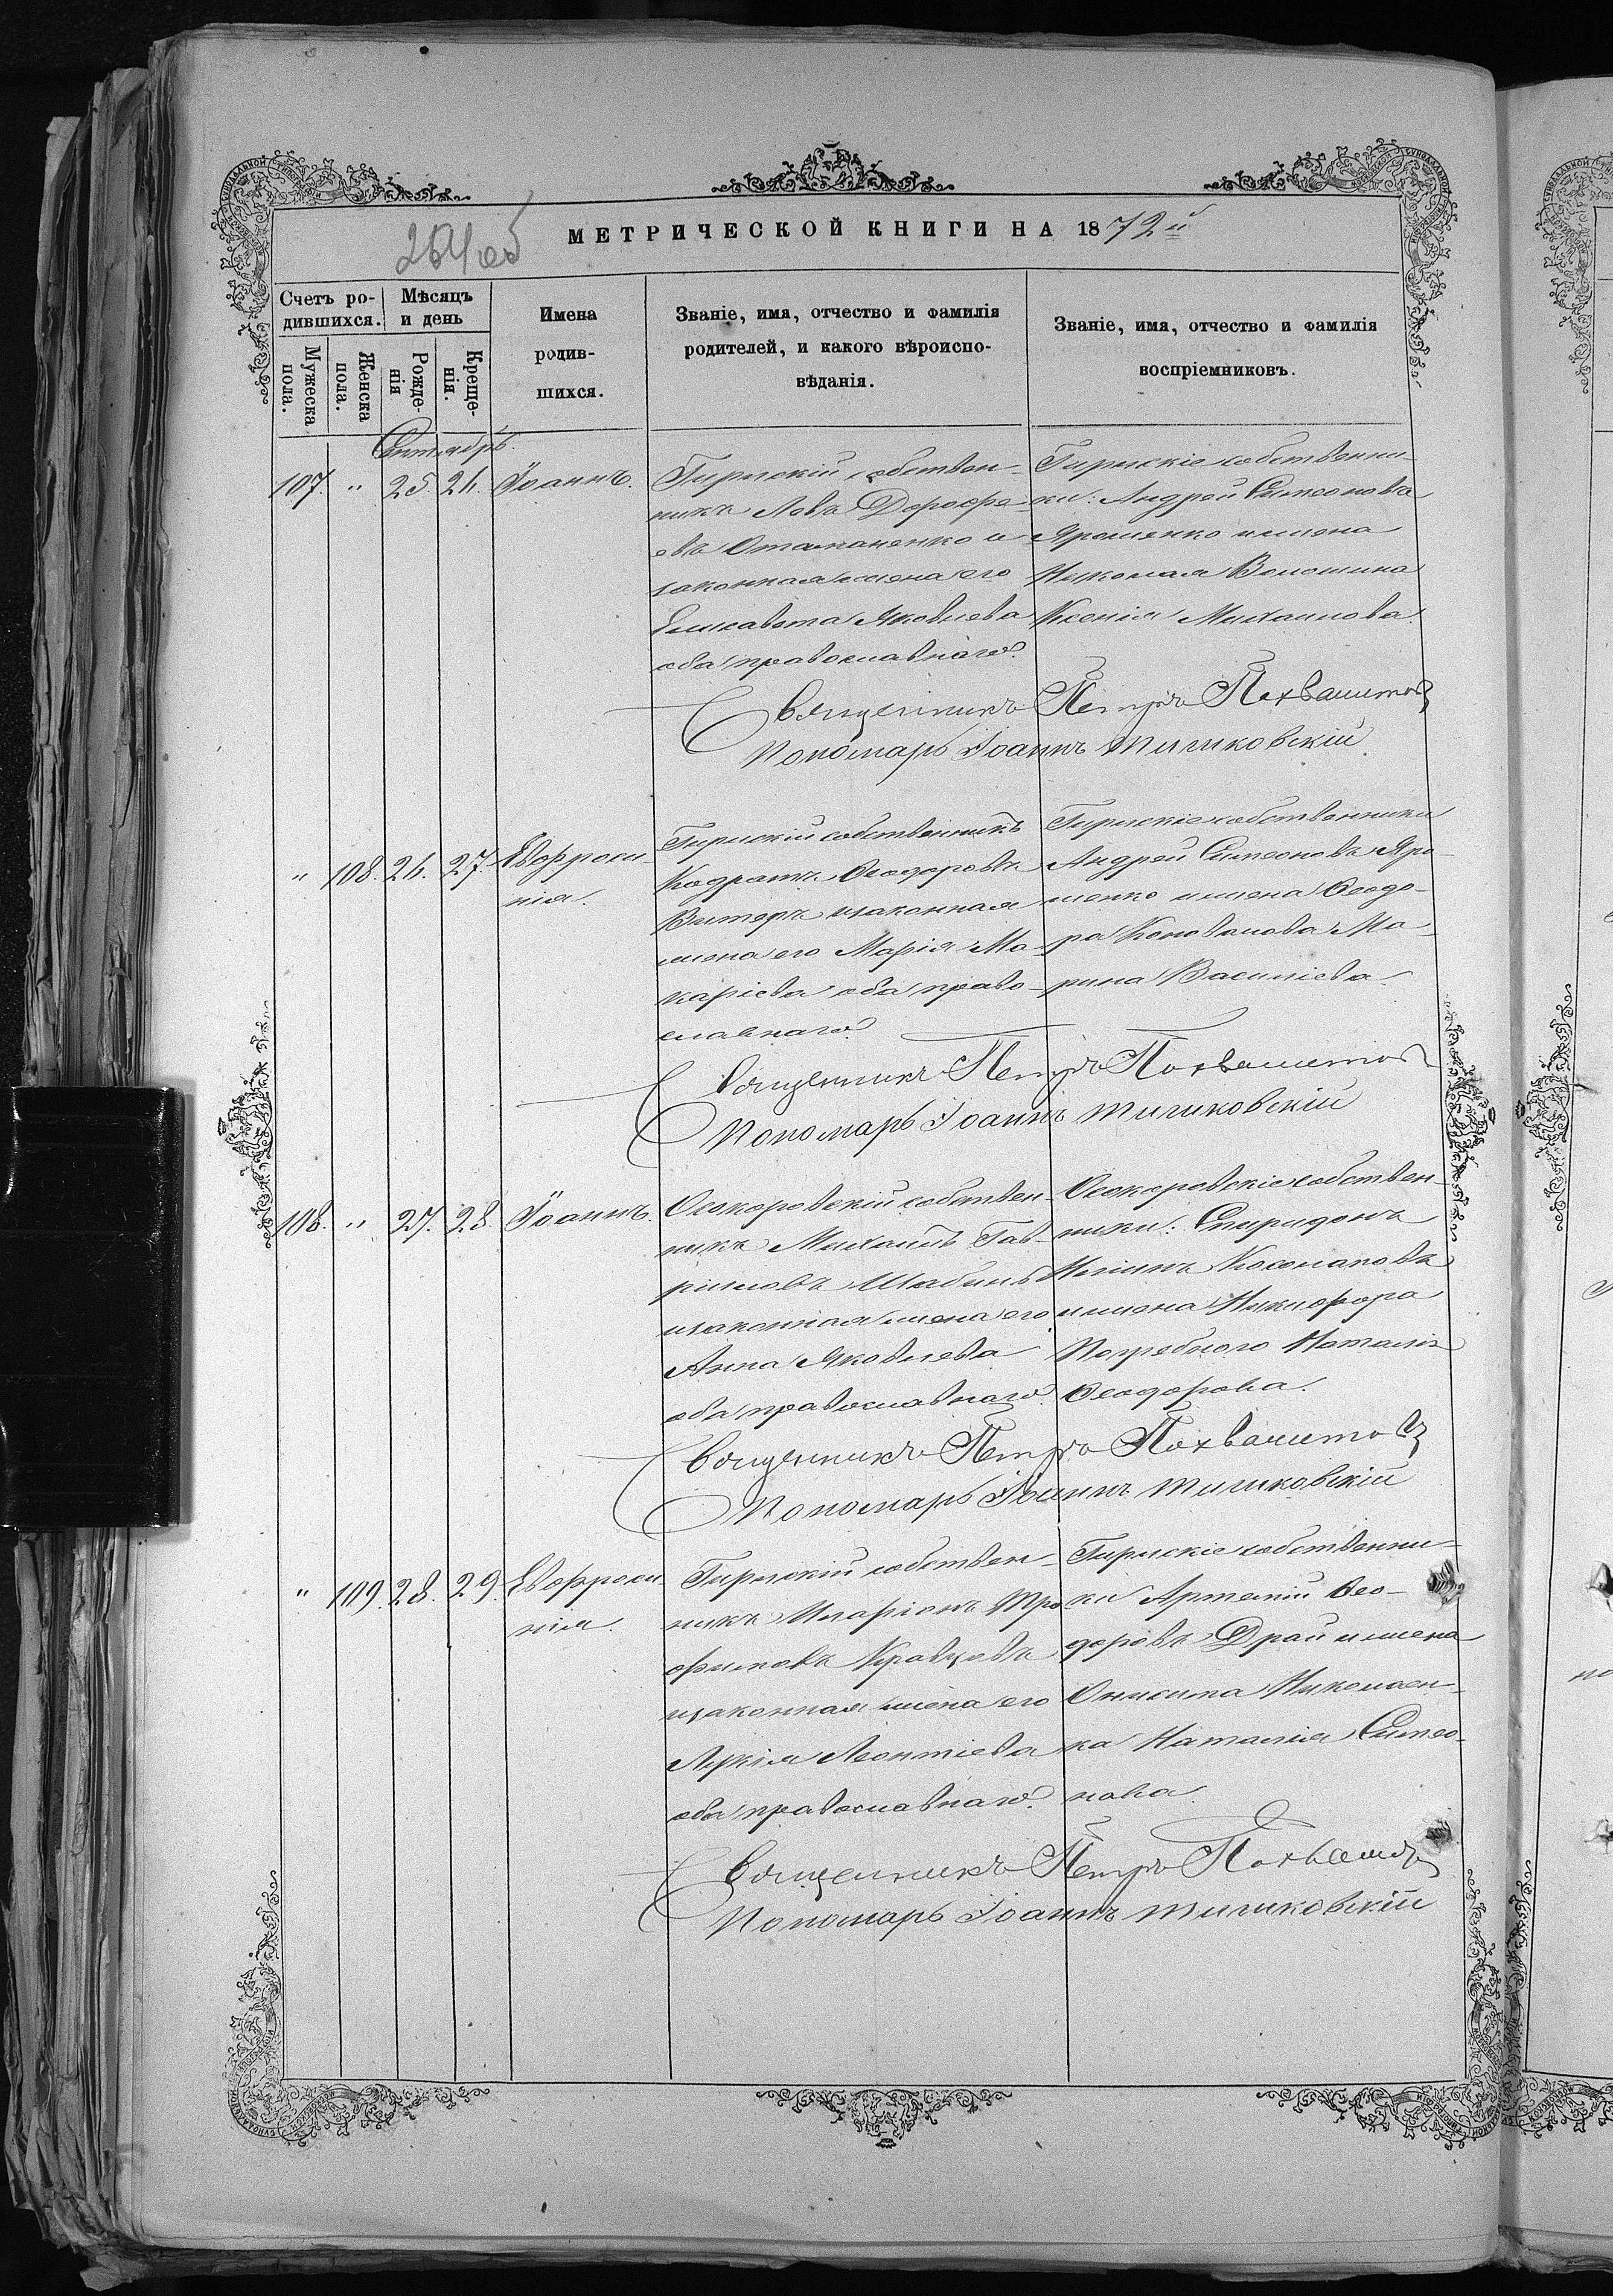 264 об
МЕТРИЧЕСКОЙ КНИГИ НА 1872й
Счетъ ро-
дившихся.
Мѣсяцъ
и день
Мужеска
пола.
Женска
пола.
Рожде-
нія
Креще-
нія.
Имена
родив-
шихся.
Званіе, имя, отчество и фамилія
родителей, и какого вѣроиспо-
вѣданія.
Званіе, имя, отчество и фамилія
воспріемниковъ.
Сентябрь.
107. " 25. 26. Іоаннъ.
Гирискій собствен-
никъ Левъ Дорофе-
евъ Отаманенко и
законная жена его
Елисавета Яковлева
оба православнаго.
Гирискіе собственни-
ки: Андрей Симеоновъ
Ярошенко и жена
Николая Волошина
Ксенія Михаилова.
Священникъ Петръ Похвалитовъ
Пономарь Іоаннъ Тишковскій
" 108. 26. 27. Евфроси-
нія.
Гирискій собственникъ
Кодратъ Ѳеодоровъ
Витеръ и законная
жена его Марія Ма-
каріева оба право-
славнаго.
Гирискіе собственники
Андрей Симеоновъ Яро-
шенко и жена Ѳеодо-
ра Коновалова Ма-
рина Василіева.
Священникъ Петръ Похвалитовъ
Пономарь Іоаннъ Тишковскій
108. " 27. 28. Іоаннъ.
Осокоровскій собствен-
никъ Михаилъ Гав-
риловъ Шабинъ
и законная жена его
Анна Яковлева
оба православнаго.
Осокоровскіе собствен-
ники: Спиридонъ
Косолаповъ
и жена Никифора
Погребного Наталія
Ѳеодорова.
Священникъ Петръ Похвалитовъ
Пономарь Іоаннъ Тишковскій
" 109. 28. 29. Евфроси-
нія.
Гирискій собствен-
никъ Иларіонъ Тро-
фимовъ Кравцовъ
и законная жена его
Леонтіева
оба православнаго.
Гирискіе собственни-
ки Артемій Ѳео-
доровъ Драй и жена
Оникита Николаен-
ка Наталія Симео-
нова.
Священникъ Петръ Похвалитовъ
Пономарь Іоаннъ Тишковскій